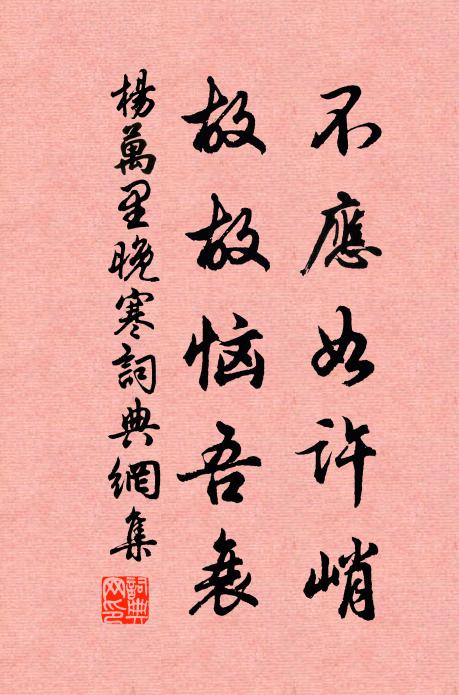 不應如許峭
故故恼吾衰
楊萬里晚寒詞典網集
詞典網印